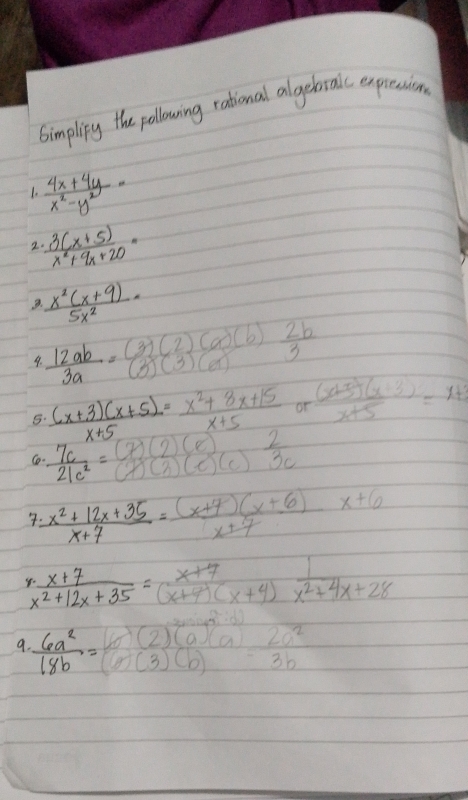 Simplify the following rational algebraic expressions
1. 4x+4y / x²-y² =
2. 3(x+5) / x²+9x+20 =
3. x²(x+9) / 5x² =
4. 12ab / 3a = (3)(2)(a)(b) / (3)(3)(a) 2b / 3
5. (x+3)(x+5) / x+5 = x²+8x+15 / x+5 or (x+5)(x+3) / x+5 = x+3
6. 7c / 21c² = (7)(2)(c) / (7)(3)(c)(c) 2 / 3c
7. x²+12x+35 / x+7 = (x+7)(x+6) / x+7 x+6
8. x+7 / x²+12x+35 = x+7 / (x+7)(x+4) 1 / x²+4x+28
9. 6a² / 18b = (6)(2)(a)(a) / (6)(3)(b) = 2a² / 3b